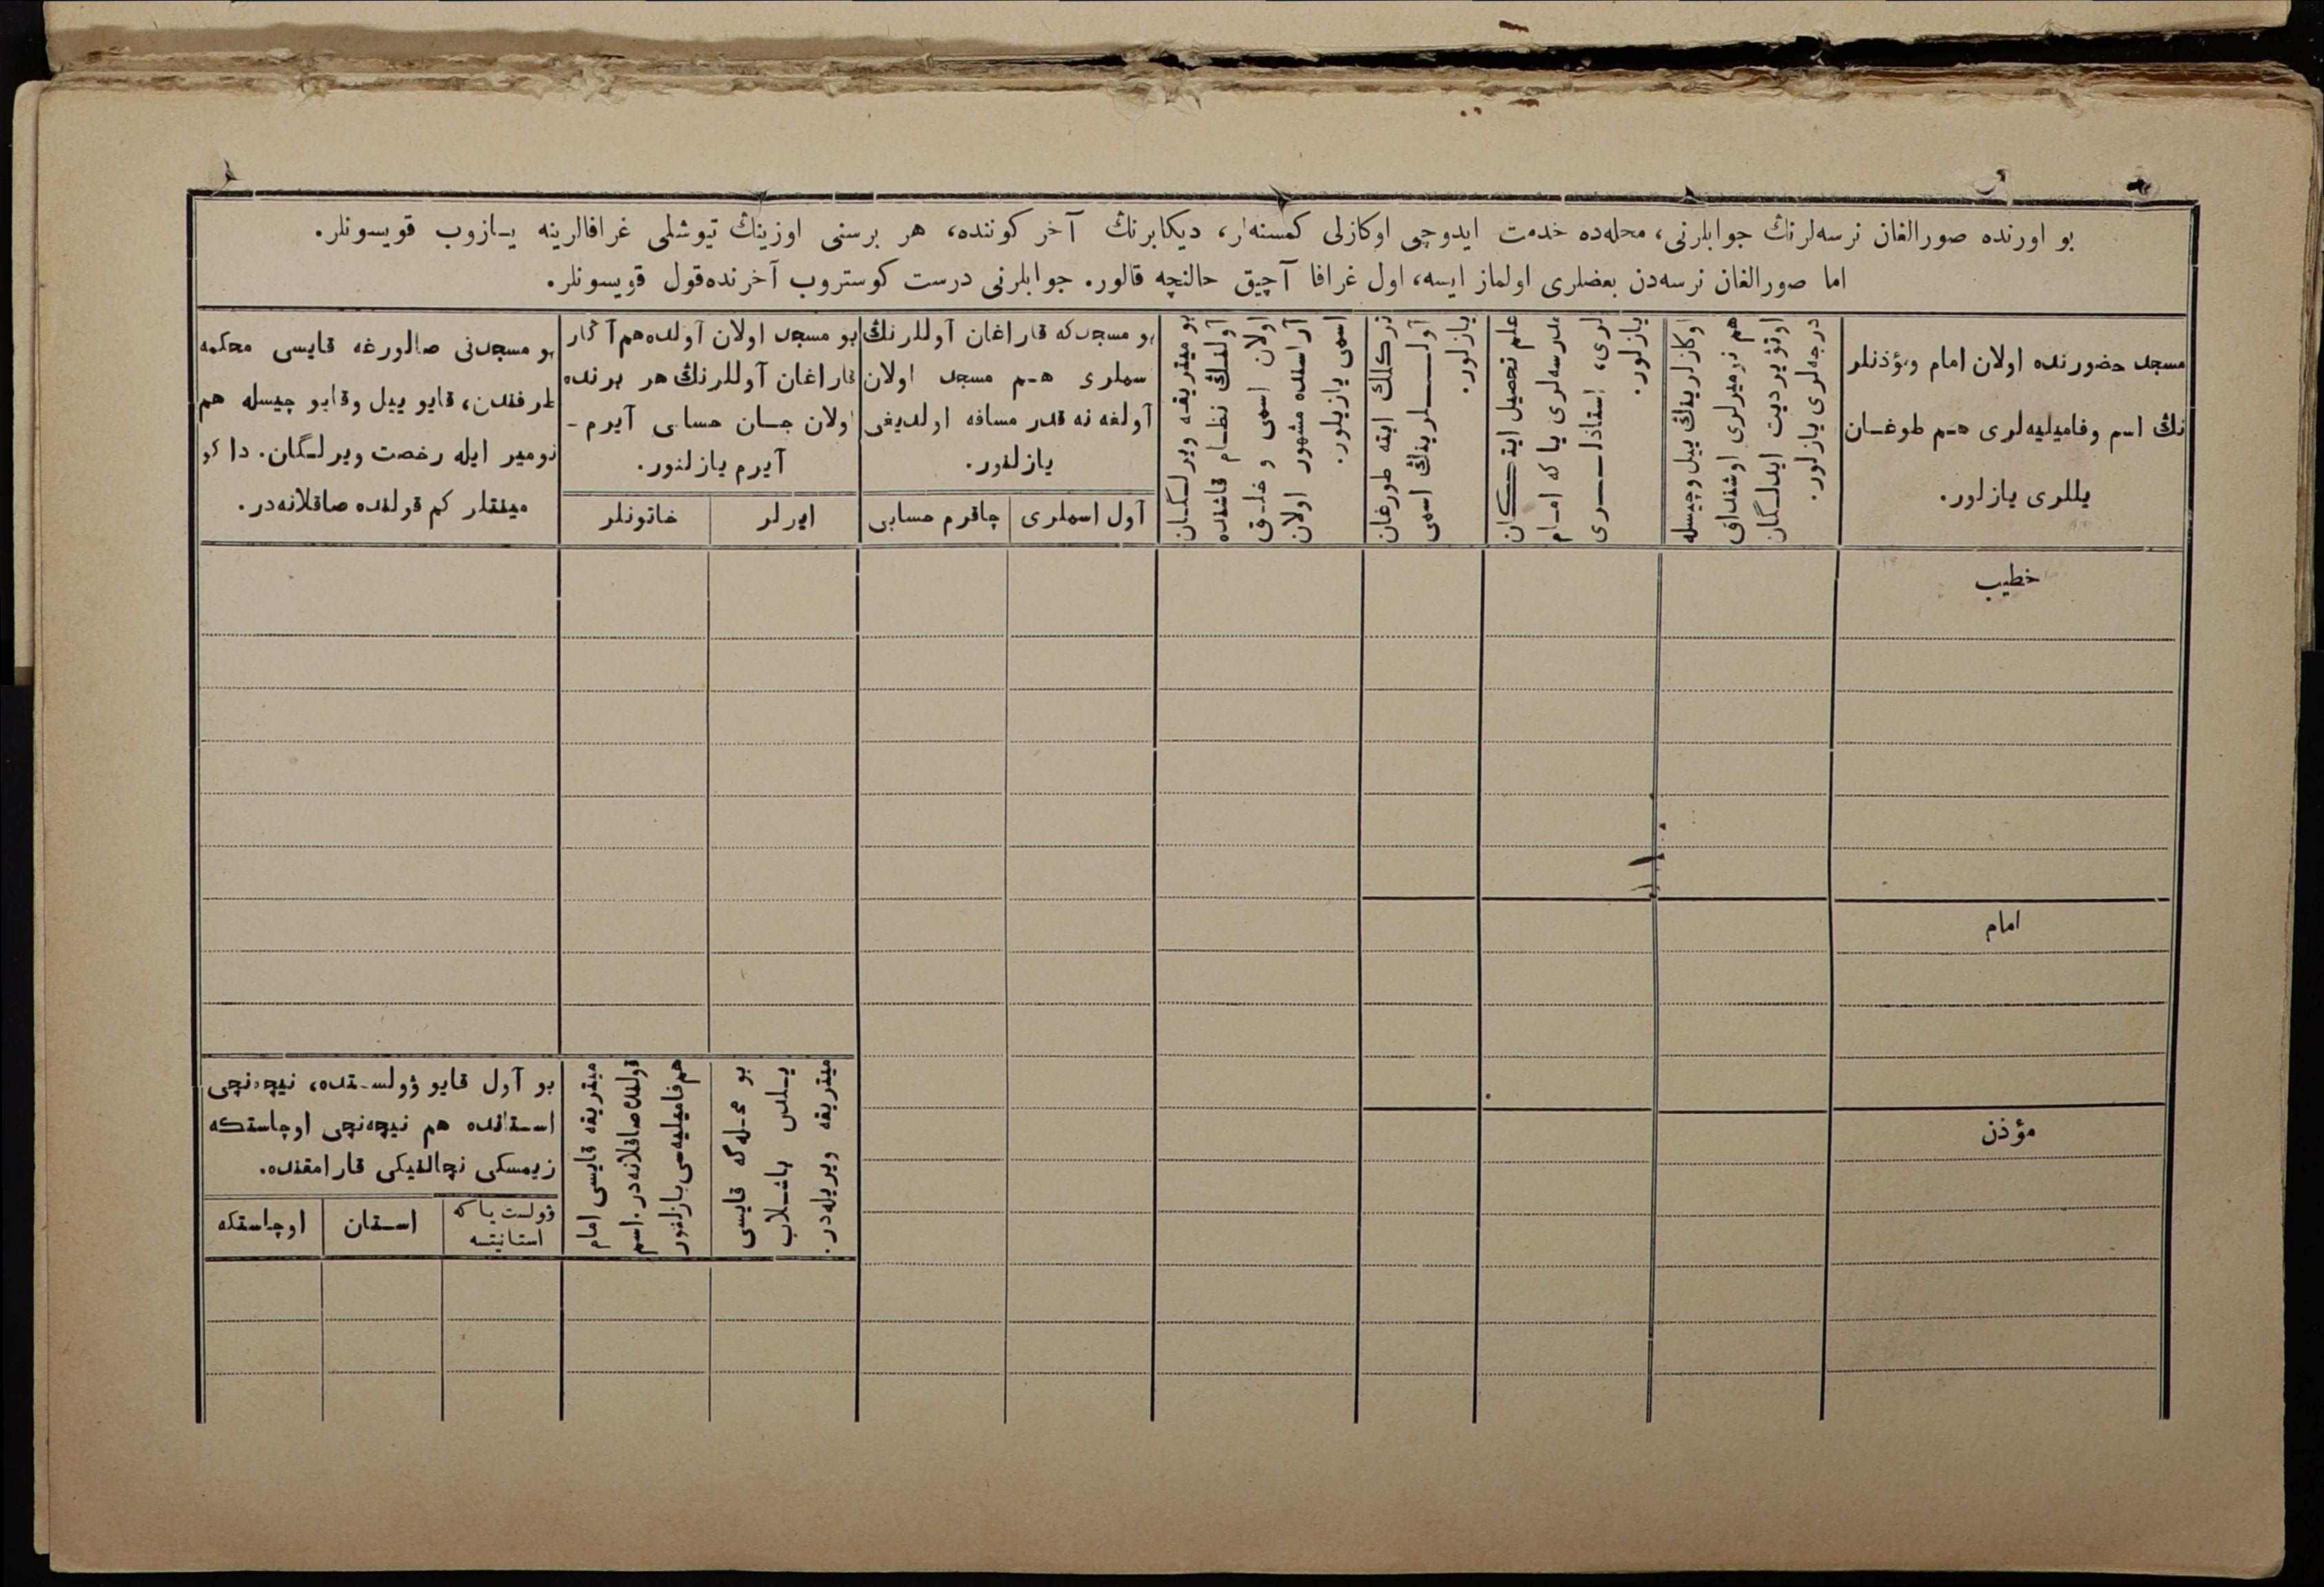 بو اورنده صورالغان نرسه‌لرنڭ جوابلرنی، محله‌ده خدمت ایدوچی اوكازلی كمسنه‌لر، دیكابرنڭ آخر كوننده، هر برسنی اوزینڭ تیوشلی غرافالرینه یازوب قویسونلر.
اما صورالغان نرسه‌دن بعضلری اولماز ایسه، اول غرافا آچیق حالنچه قالور. جوابلرنی درست كوستروب آخرنده قول قویسونلر.
مسجد حضورنده اولان امام ومؤذنلر
نڭ اسم وفامیلیه‌لری هم طوغان
یللری یازلور.
اوكازلرینڭ ییل وچیسله
هم نومیرلری اوشنداق
اوتۋیردیت ایدلگان
درجه‌لری یازلور.
علم تحصیل ایتكان
مدرسه‌لری یا كه امام
لری، استاذلری
یازلور.
نزكلك ایته طورغان
آوللرینڭ اسمی
یازلور.
بو میتریقه ویرلگان
آولنڭ نظام قاشنده
اولان اسمی و خلق
آراسنده مشهور اولان
اسمی یازیلور.
بو مسجدكه قاراغان آوللرنڭ
اسملری هم مسجد اولان
آولغه نه قدر مسافه اولدیغی
یازلنور.
آول اسملری
چاقرم حسابی
بو مسجد اولان آولده هم آڭار
قاراغان آوللرنڭ هر برنده
اولان جان حسابی آیرم -
آیرم یازلنور.
ایرلر
خاتونلر
بو مسجدنی صالورغه قایسی محكمه
طرفندن، قایو ییل وقایو چیسله هم
نومیر ایله رخصت ویرلگان. داكو
مینتلر كم قولنده صاقلانه‌در.
خطیب
امام
مؤذن
بو محله‌گه قایسی
یلدن باشلاب
میتریقه ویریله‌در.
میتریقه قایسی امام
قولنده صاقلانه‌در. اسم
هم فامیلیه‌سی یازلنور
بو آول قایو ۋولستده، نیچه‌نچی
استانده هم نیچه‌نچی اوچاستكه
زیمسكی نچالنیكی قارامقنده.
ۋولست یا كه
استانیتسه
استان
اوچاستكه